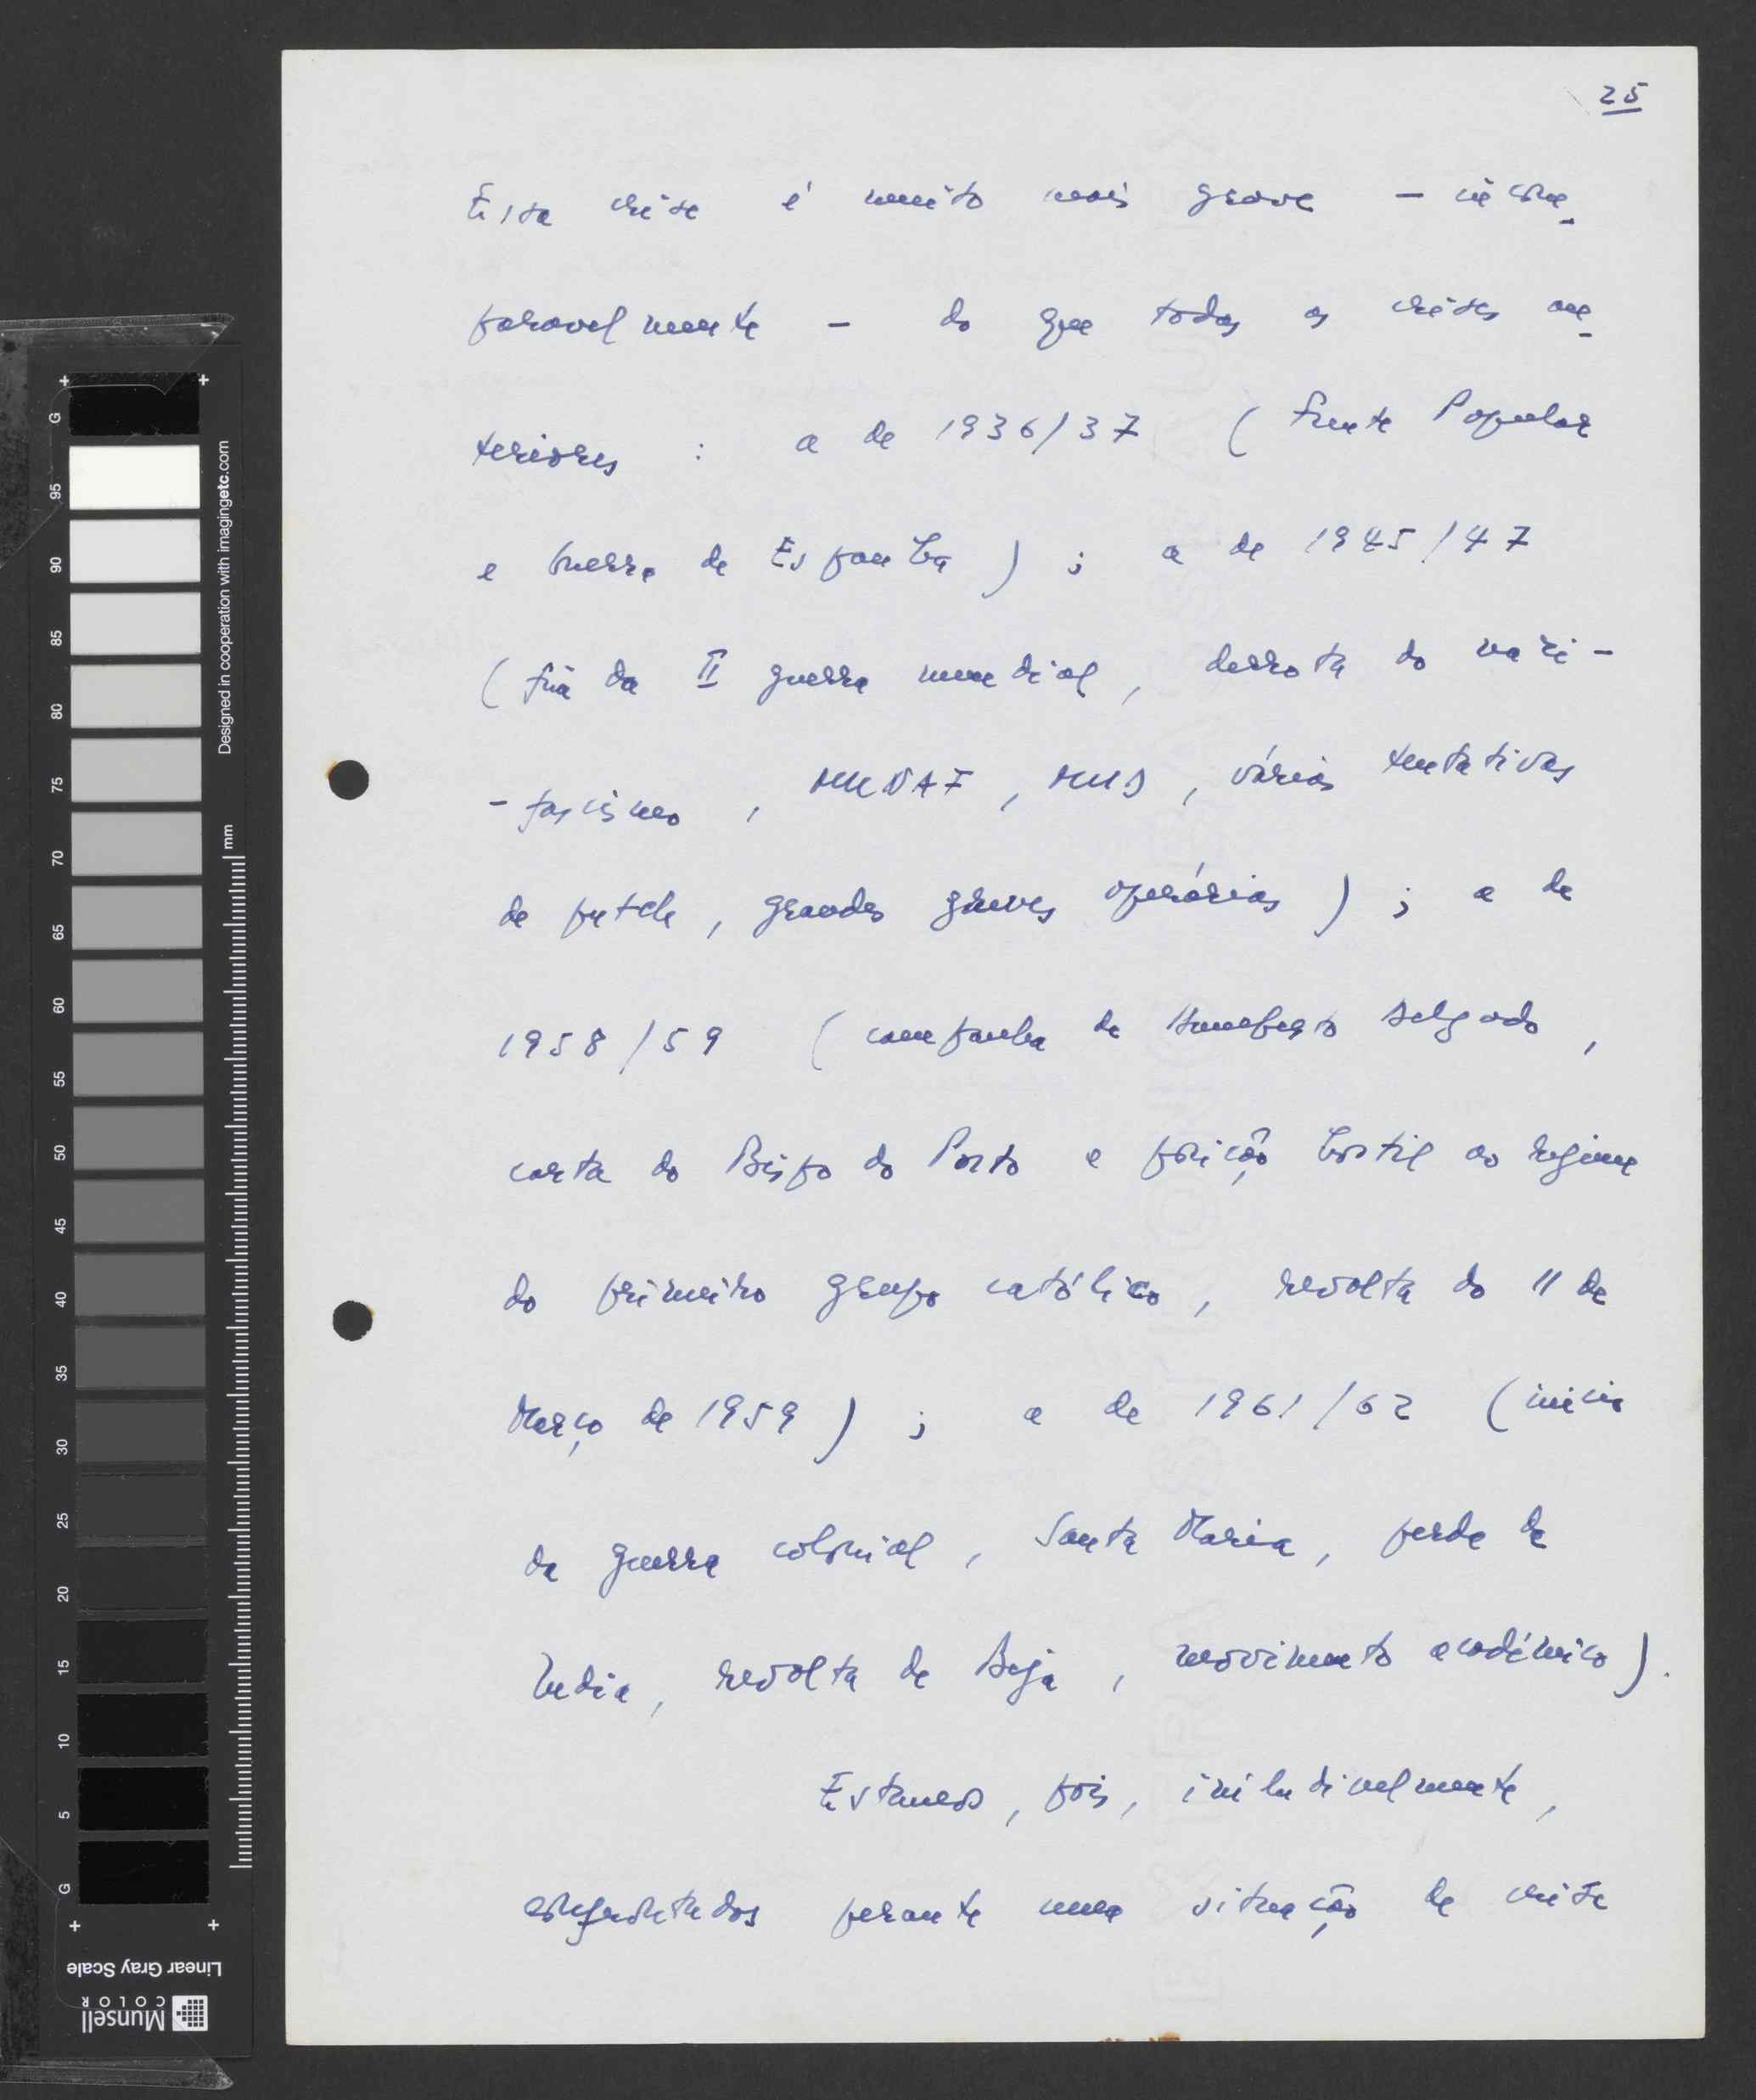 25
Essa crise é muito mais grave – incom-
paravelmente – do que todas as crises an-
teriores : a de 1936/37 ( Frente Popular
e Guerra de Espanha ) ; a de 1945/47
( fim da II guerra mundial , derrota do nazi-
-fascismo , MUNAF , MUD , várias tentativas
de putch , grandes greves operárias ) ; a de
1958/59 ( campanha de Humberto Delgado ,
carta do Bispo do Porto e posição hostil ao regime
do primeiro grupo católico , revolta do 11 de
Março de 1959 ) ; a de 1961/62 ( início
da guerra colonial , Santa Maria , perda da
India , revolta de Beja , movimento académico ) .
Estamos , pois , iniludivelmente ,
confrontados perante uma situação de crise
G
95
90
85
80
75
70
65
60
55
50
45
40
35
30
25
20
15
10
5
G
Designed in cooperation with imagingetc.com
mm
Linear Gray Scale
Munsell
COLOR